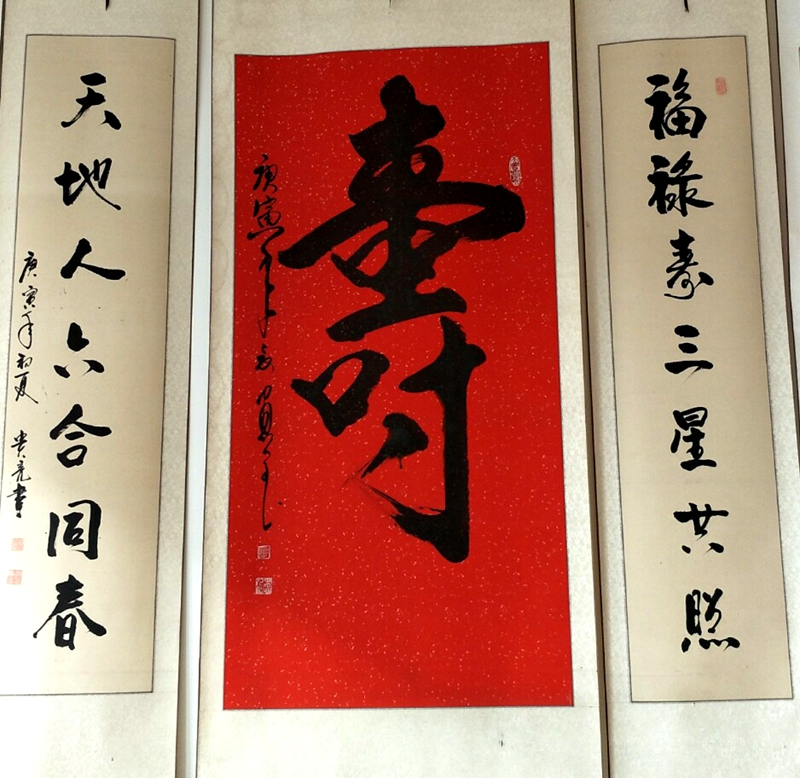 福禄寿三星共照
壽
庚寅年
天地人六合同春
庚寅年初夏
贵亮書